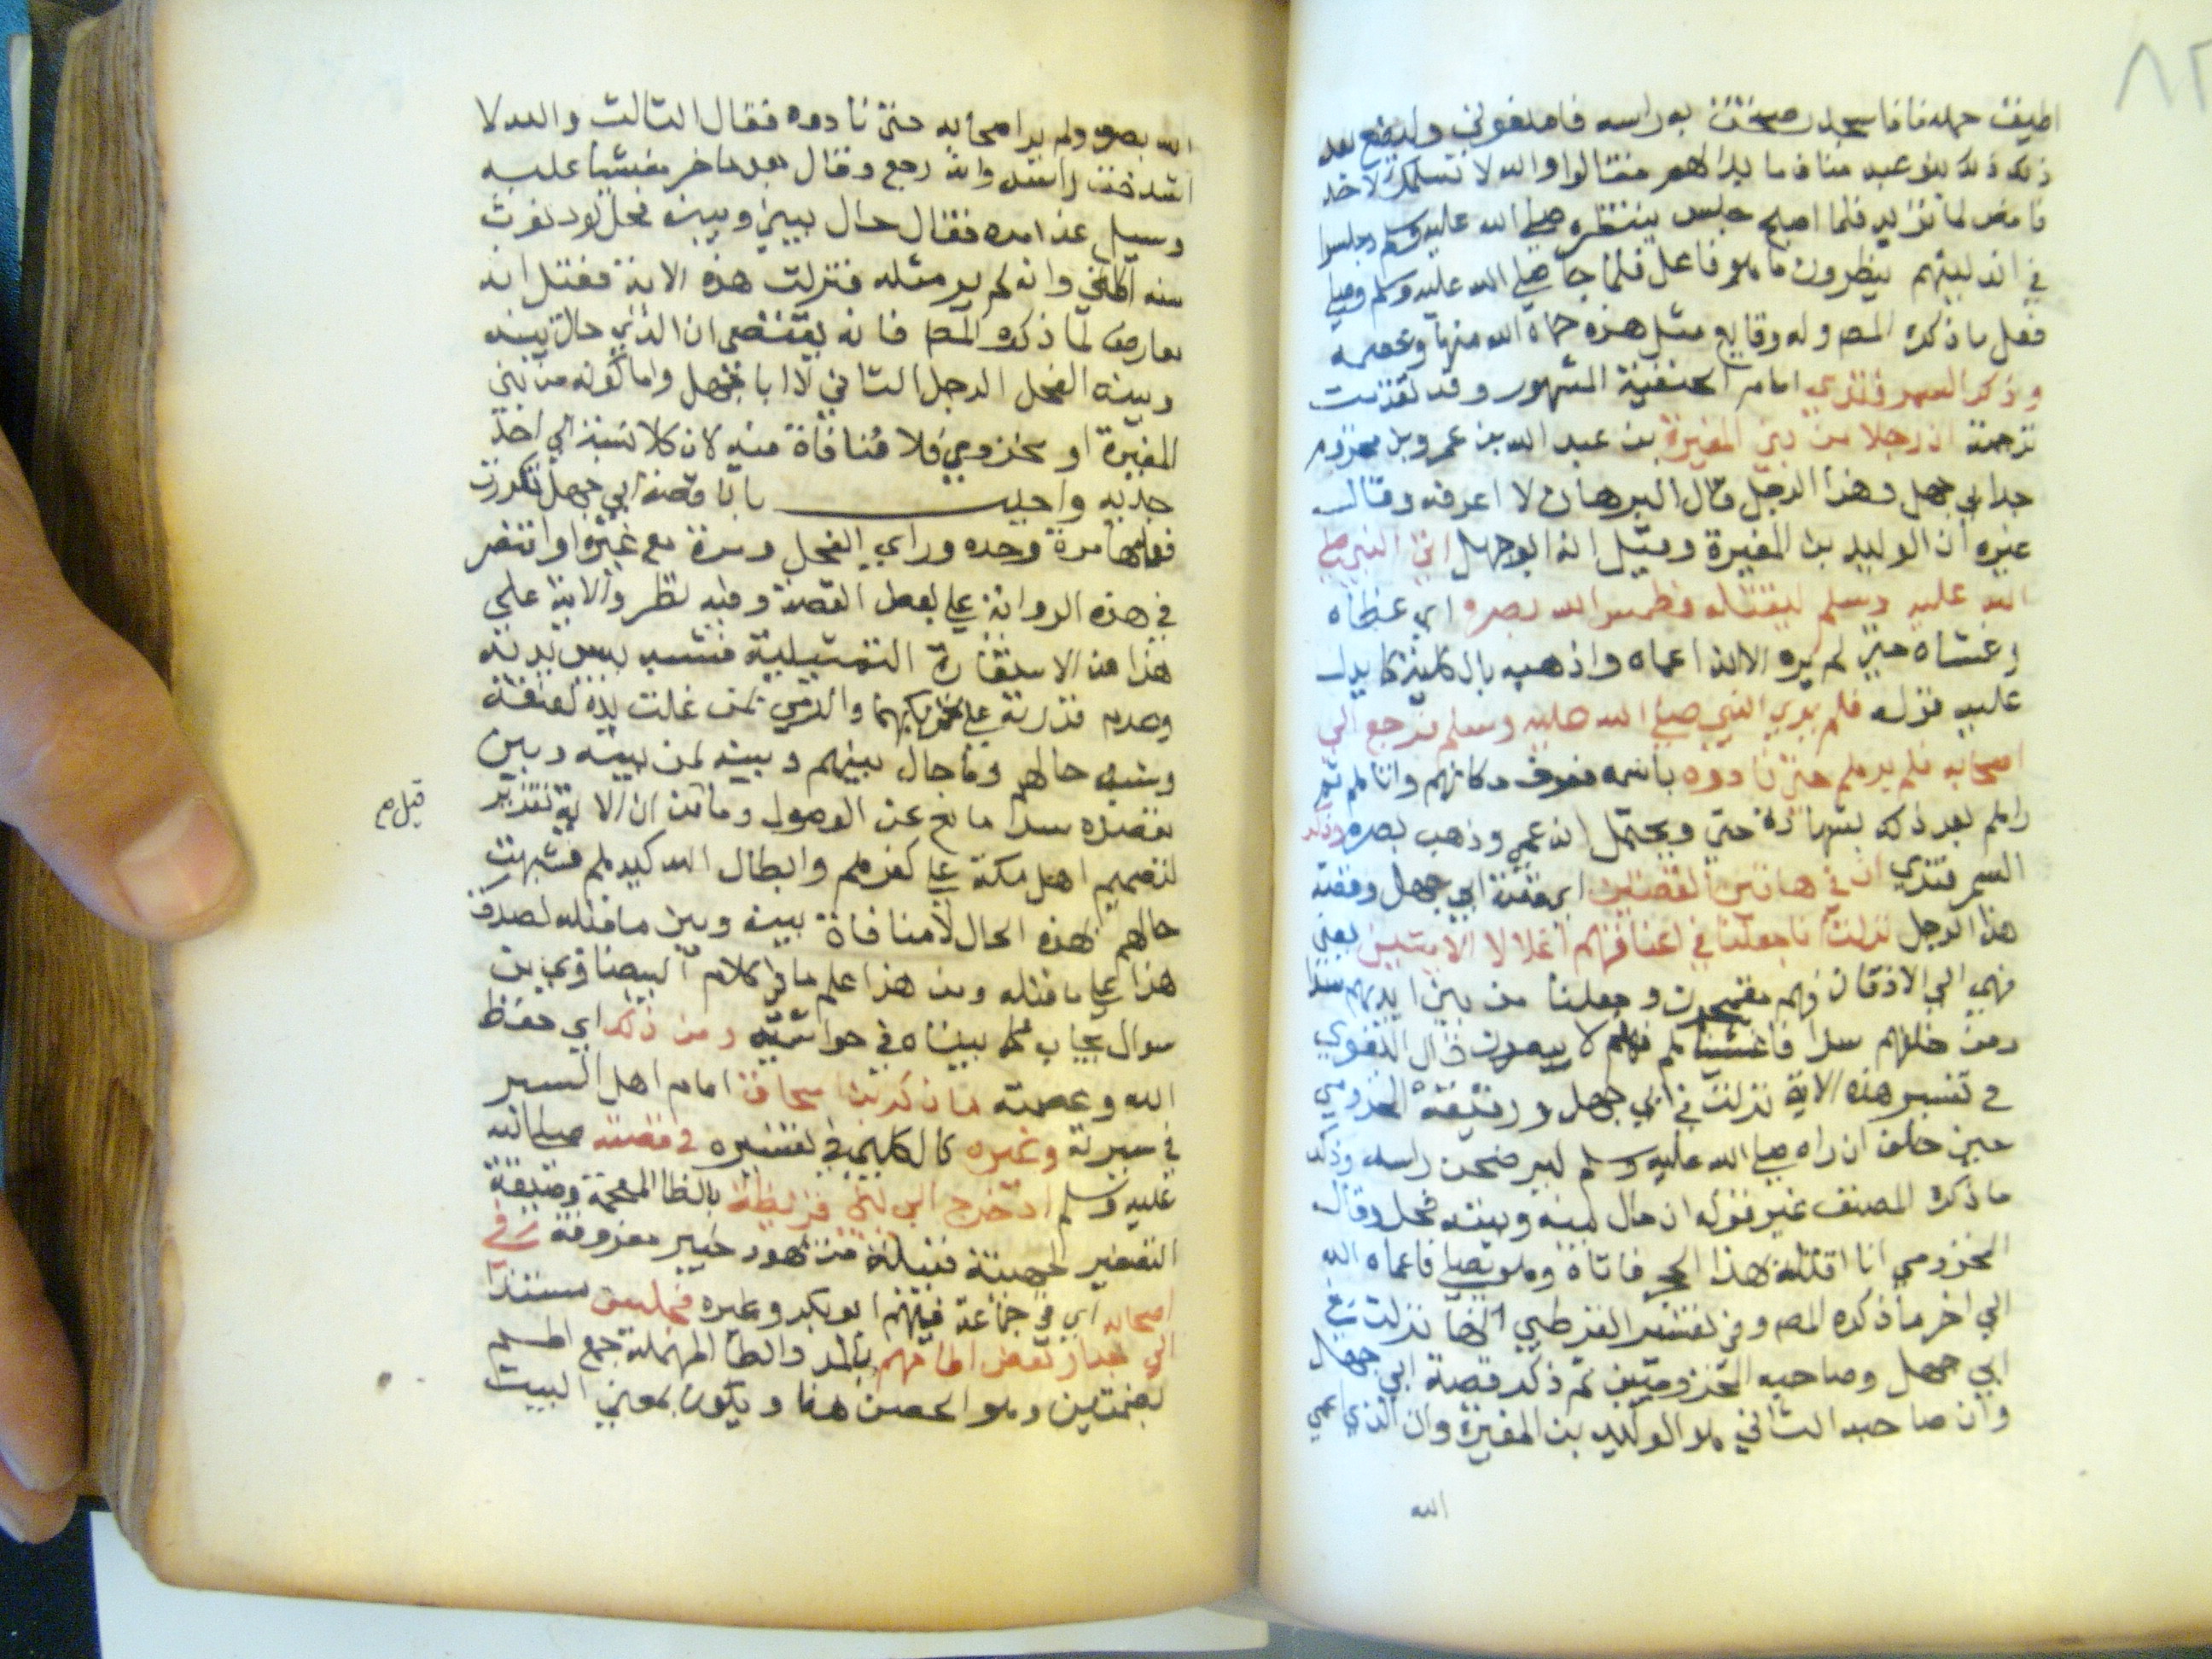 ٨٢
اطيق حمله فاذا سجد رضخت به راسه فامنعوني وليصنع بعد
ذلك ذلك بنو عبد مناف ما بدا لهم فقالوا والله لا نسلمك لاحد
فامض لما تريد فلما اصبح جلس ينتظره صلى الله عليه وسلم وجلسوا
في انديتهم ينظرون ما هو فاعل فلما جا صلى الله عليه وسلم وصلى
فعل ما ذكره المص وله وقايع مثل هذه حماه الله منها وعصمه
وذكر السمرقندي امام الحنفية المشهور وقد تقدمت
ترجمته ان رجلا من بني المغيرة بن عبد الله بن عمرو بن مخزوم
جد ابي جهل وهذا الرجل قال البرهان لا اعرفه وقال
غيره ان الوليد بن المغيرة وقيل انه ابو جهل اتى النبي صلى
الله عليه وسلم ليقتله فطمس الله بصره اي غطاه
وغشاه حتى لم يره لا انه اعماه واذهبه بالكلية كما يدل
عليه قوله فلم ير النبي صلى الله عليه وسلم فرجع الى
اصحابه فلم يرهم حتى نادوه باسمه فعرف مكانهم وانا لهم ثم
راهم بعد ذلك حتى ويحتمل انه عمي وذهب بصره وذكر
السمرقندي ان في هاتين القصتين اي قصة ابي جهل وقصة
هذا الرجل نزلت انا جعلنا في اعناقهم اغلالا الايتين يعني
فهي الى الاذقان فهم مقمحون وجعلنا من بين ايديهم سدا
ومن خلفهم سدا فاغشيناهم فهم لا يبصرون قال البغوي
في تفسير هذه الاية نزلت في ابي جهل ورفيقه المخزومي
حين حلف ان راه صلى الله عليه وسلم ليرضخن راسه وذكر
ما ذكره المصنف غير قوله ان حال بينه وبينه فحل وقال
المخزومي انا اقتله بهذا الحجر فاتاه وهو يصلي فاعماه الله
الى اخر ما ذكره المص وفي تفسير القرطبي انها نزلت في
ابي جهل وصاحبيه المخزوميين ثم ذكر قصة ابي جهل
وان صاحبه الثاني هو الوليد بن المغيرة وان الذي عمي
الله
الله بصره ولم ير اصحابه حتى نادوه فقال الثالث والله لا
شدخن راسه وانه رجع وقال بعدما خر مغشيا عليه
وسيل عن امره فقال حال بيني وبينه فحل لو دنوت
منه اكلني وانه لم ير مثله فنزلت هذه الاية فقيل انه
معارض لما ذكره المص فانه يقتضى ان الذي حال بينه
وبينه الفحل الرجل الثاني لا ابا جهل واما كونه من بني
المغيرة او مخزومي فلا منافاة منه لان كلا نسبة الى احد
جديه واجيب بان قصة ابي جهل تكررت
فعلها مرة وحده وراي الفحل ومرة مع غيره او اقتصر
في هذه الرواية على بعض القصة وفيه نظر والاية على
هذا من الاستعارة التمثيلية فشبه يبس يديه
وعدم قدرته على تحريكهما والرمي بمن غلت يده لعنقه
وشبه حالهم وما حال بينهم وبينه لمن بينه وبين
مقصده سدا مانع عن الوصول وما قيل ان الاية تقرير
لتصميم اهل مكة على كفرهم وابطال الله كيدهم فشبهت
حالهم بهذه الحال لا منافاة بينه وبين ما قبله لصدق
هذا على ما قبله ومن هذا علم ما في كلام البيضاوي من
سوال بينناه في حواشيه ومن ذلك اي حفظ
الله وعصمته ما ذكر ابن اسحاق امام اهل السير
في سيرته وغيره كالكلبي في تفسيره في قصته صلى الله
عليه وسلم اذ خرج الى بني قريظة بالظا المعجمة وصيغة
التصغير لجهينة قبيلة من يهود خيبر معروفة في
اصحابه اي في جماعة فيهم ابو بكر وغيره فجلس مستندا
الى جدار بعض اطامهم بالمد والطا المهملة جمع اطم
بضمتين وهو الحصن هنا ويكون بمعنى البيت